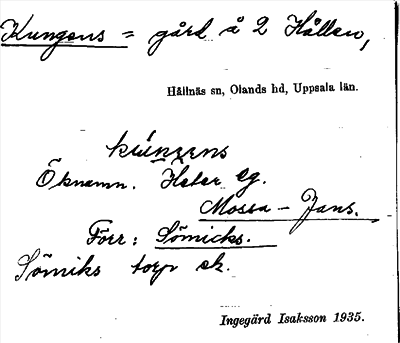 Kungens = gård å 2 Hållen,
Hållnäs sn, Olands hd, Uppsala län.
Öknamn. Heter eg.
Mossa-Jans.
Förr: Sömicks.
Sömiks torp ek.
Ingegärd Isaksson 1935.